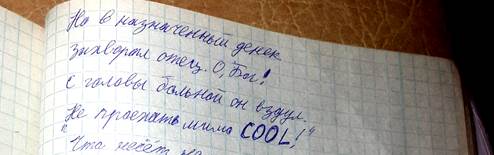 На в назначенный денек
Захворал отец. О, Бог!
С головы больной он вздул.
Не проехать мимо COOL!"
"Что несёт